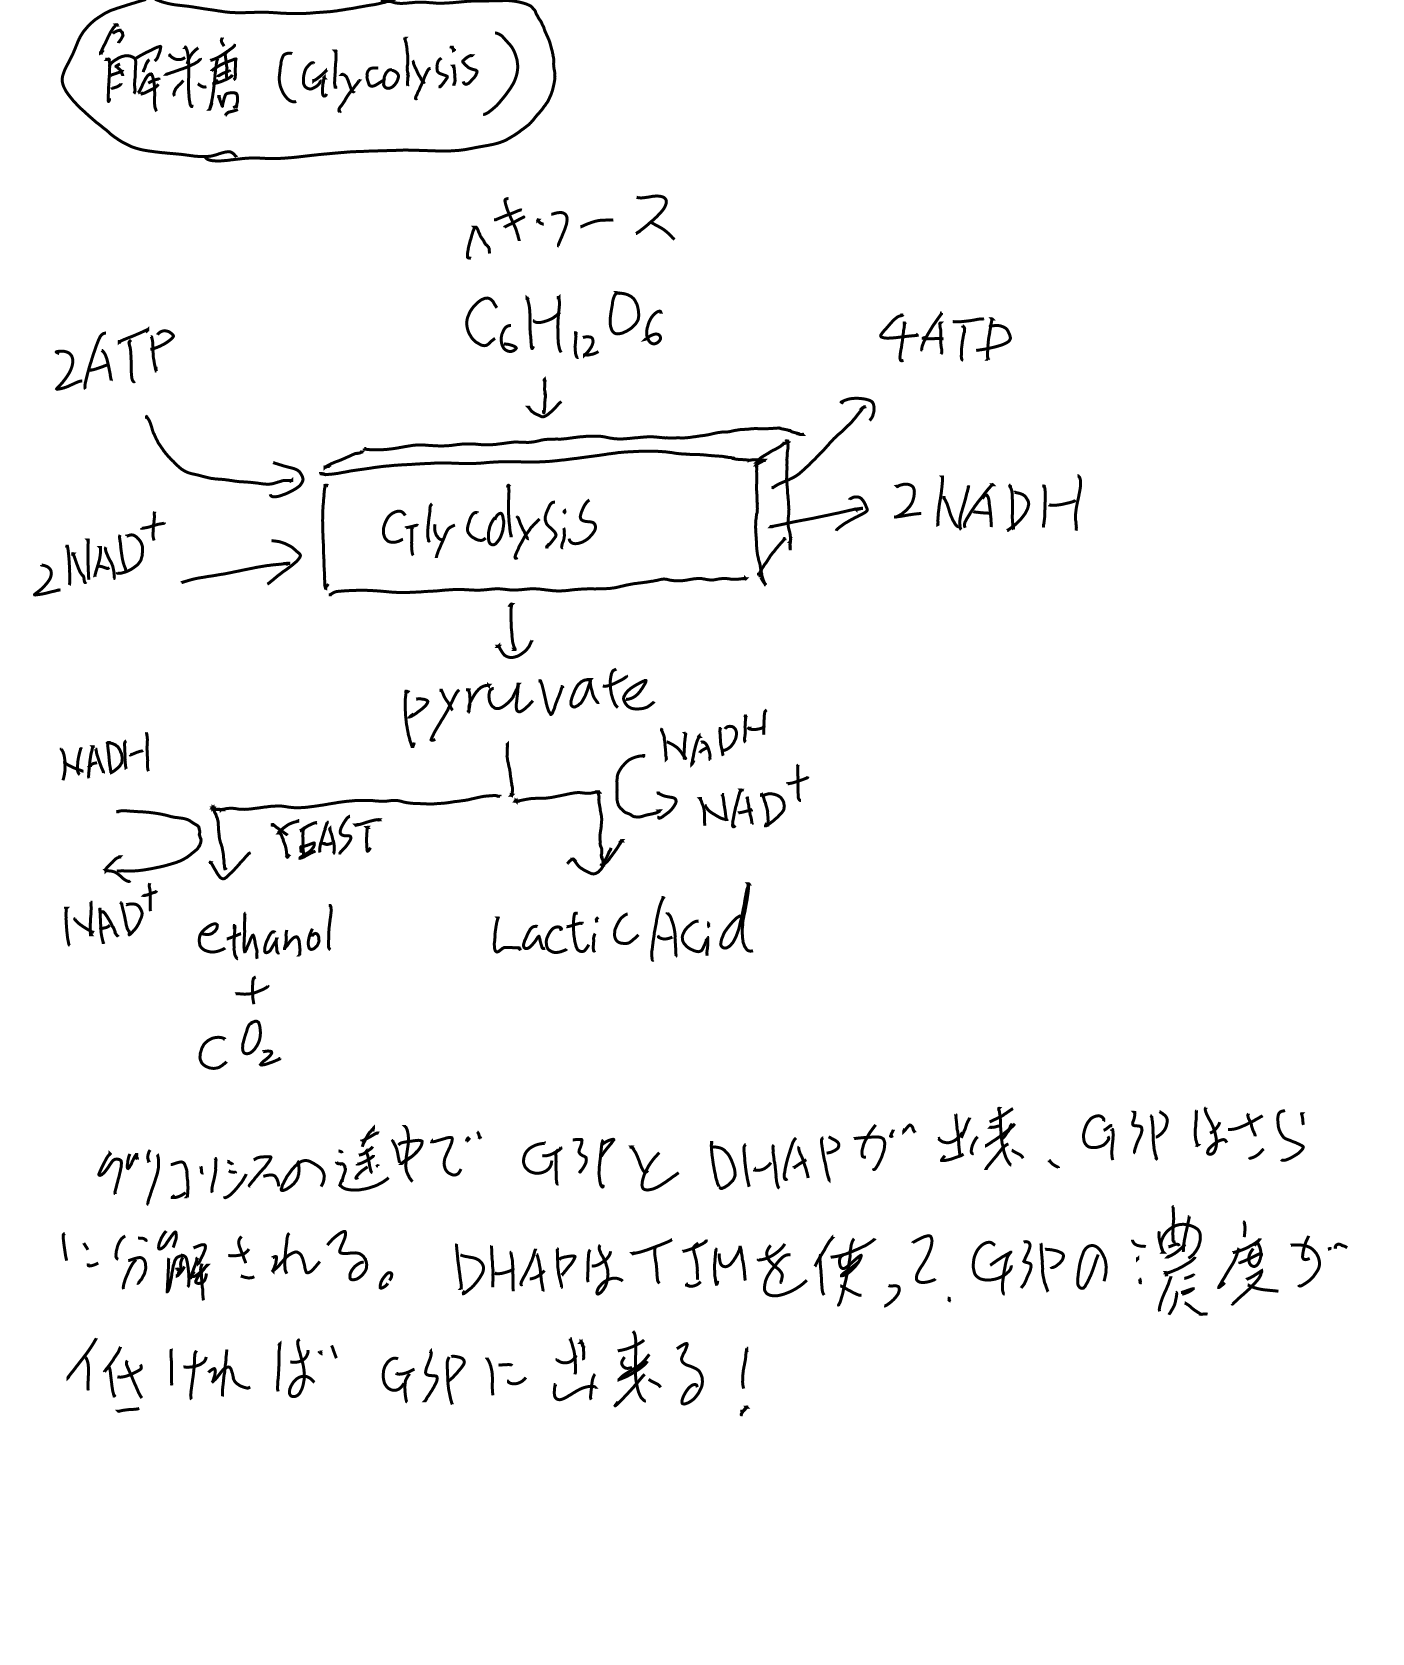 解糖 (Glycolysis)
ヘキソース
C₆H₁₂O₆
2ATP
4ATP
2NAD⁺
Glycolysis
2NADH
pyruvate
NADH
NAD⁺
YEAST
NADH
NAD⁺
ethanol
+
CO₂
Lactic Acid
グリコリシスの途中で G3PとDHAPが出来、G3Pはさら
に分解される。DHAPはTIMを使って、G3Pの濃度が
低ければG3Pに出来る!